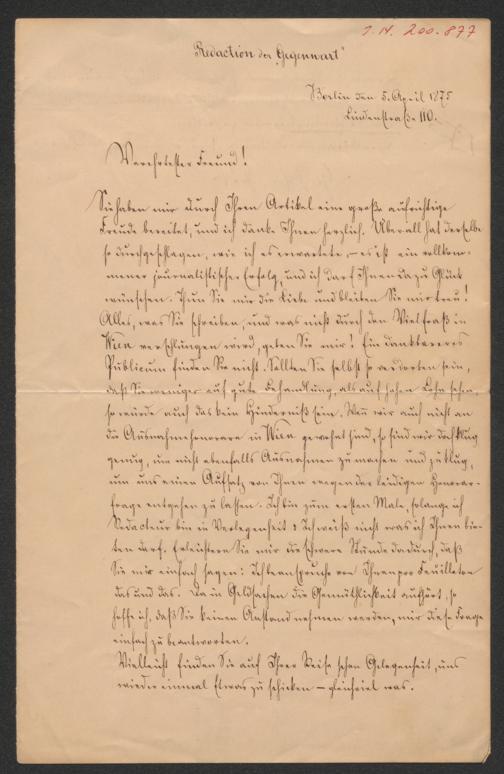 I. N. 200.877
Redaction der „Gegenwart"
Berlin den 5. April 1875
Lindenstraße 110.
Verehrtester Freund!
Sie haben mir durch Ihren Artikel eine große aufrichtige
Freude bereitet, und ich danke Ihnen herzlich. Überall hat derselbe
so durchgeschlagen, wie ich es erwartete, – es ist ein vollkom-
mener journalistischer Erfolg, und ich darf Ihnen dazu Glück
wünschen. Thun Sie mir die Liebe und bleiben Sie mir treu!
Alles, was Sie schreiben, und was nicht durch den Vielfraß in
Wien verschlungen wird, geben Sie mir! Ein dankbareres
Publicum finden Sie nicht. Sollten Sie selbst so verdorben sein,
daß Sie weniger auf gute Behandlung, als auf hohen Lohn sehen,
so würde auch das kein Hinderniß sein. Wenn wir auch nicht an
die Ausnahmehonorare in Wien gewohnt sind, so sind wir doch klug
genug, um nicht ebenfalls Ausnahmen zu machen und zu klug,
um uns einen Aufsatz von Ihnen wegen der leidigen Honorar-
frage entgehen zu lassen. Ich bin zum ersten Male, solange ich
Redacteur bin in Verlegenheit: Ich weiß nicht was ich Ihnen bie-
ten darf. Erleichtern Sie mir die schwere Stunde dadurch, daß
Sie mir einfach sagen: Ich beanspruche von Ihnen pro Feuilleton
das und das. Da in Geldsachen die Gemüthlichkeit aufhört, so
hoffe ich, daß Sie keinen Anstand nehmen werden, mir diese Frage
einfach zu beantworten.
Vielleicht finden Sie auf Ihrer Reise schon Gelegenheit, uns
wieder einmal Etwas zu schicken – gleichviel was.